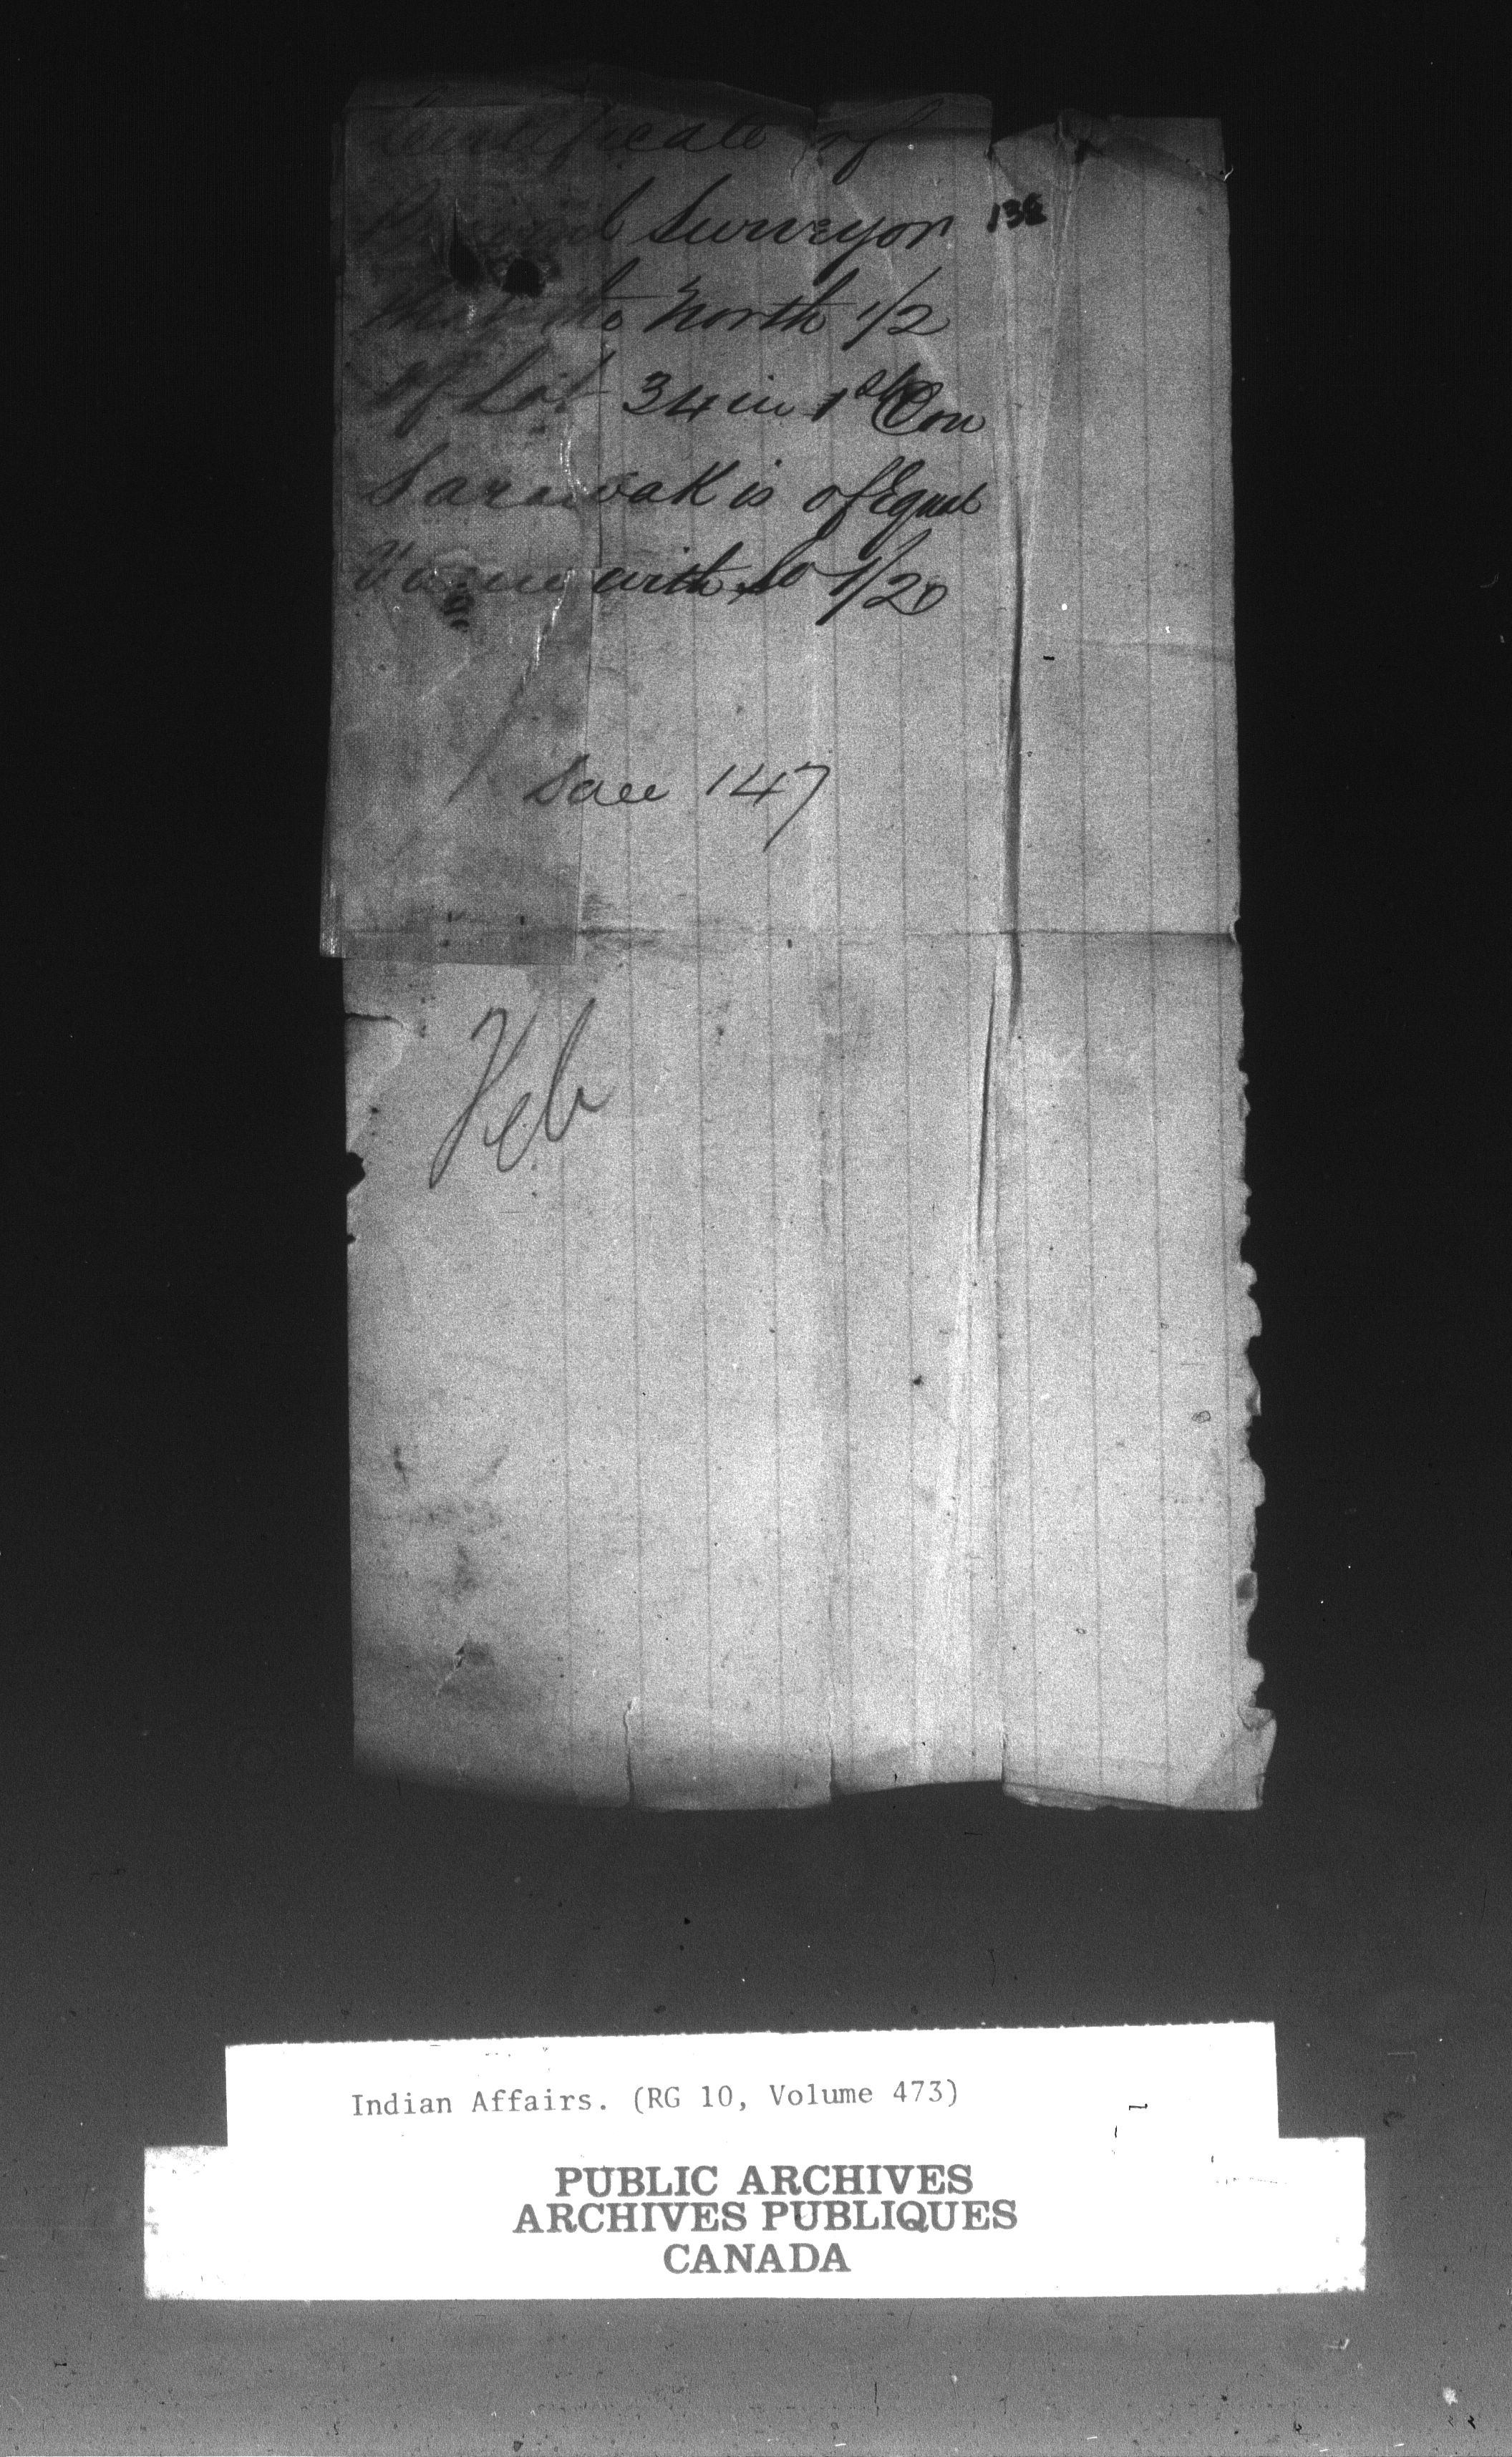 Certificate of
Provincial Surveyor 138
that the North 1/2
of Lot 34 in 1st Con
Sarawak is of Equal
Value with So 1/2
Sale 147
Feb
Indian Affairs. (RG 10, Volume 473)
PUBLIC ARCHIVES
ARCHIVES PUBLIQUES
CANADA